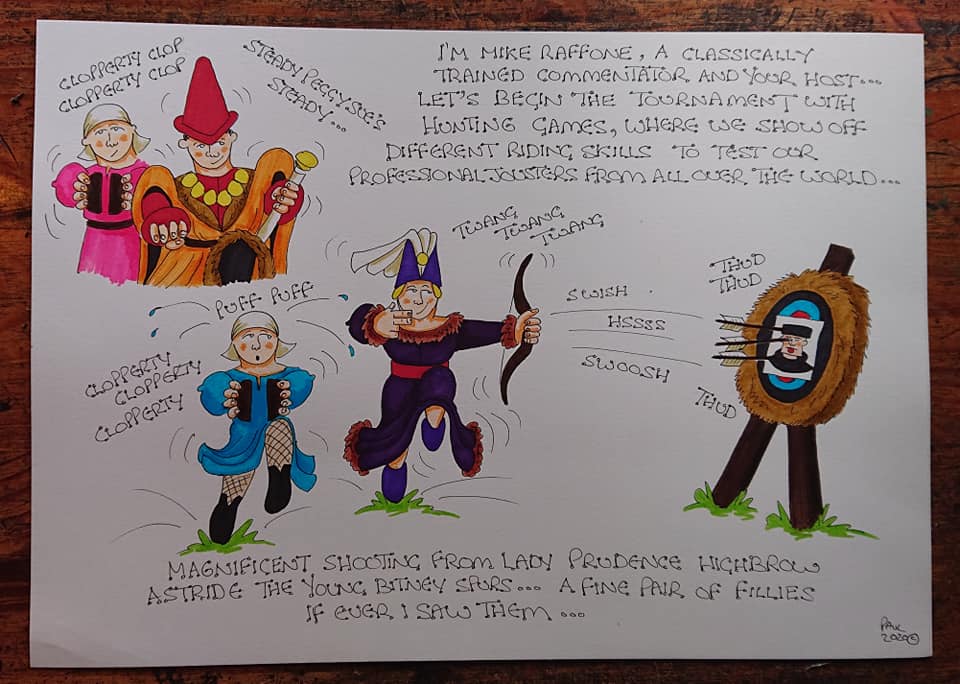 CLOPPERTY CLOP
CLOPPERTY CLOP
STEADY PEGGY SUE'S
STEADY...
I'M MIKE RAFFONE, A CLASSICALLY
TRAINED COMMENTATOR AND YOUR HOST...
LET'S BEGIN THE TOURNAMENT WITH
HUNTING GAMES, WHERE WE SHOW OFF
DIFFERENT RIDING SKILLS TO TEST OUR
PROFESSIONAL JOUSTERS FROM ALL OVER THE WORLD...
TWANG
TWANG
TWANG
PUFF PUFF
CLOPPERTY
CLOPPERTY
CLOPPERTY
SWISH
HSSSS
SWOOSH
THUD
THUD
THUD
MAGNIFICENT SHOOTING FROM LADY PRUDENCE HIGHBROW
ASTRIDE THE YOUNG BITNEY SPURS... A FINE PAIR OF FILLIES
IF EVER I SAW THEM...
PAK
2020©